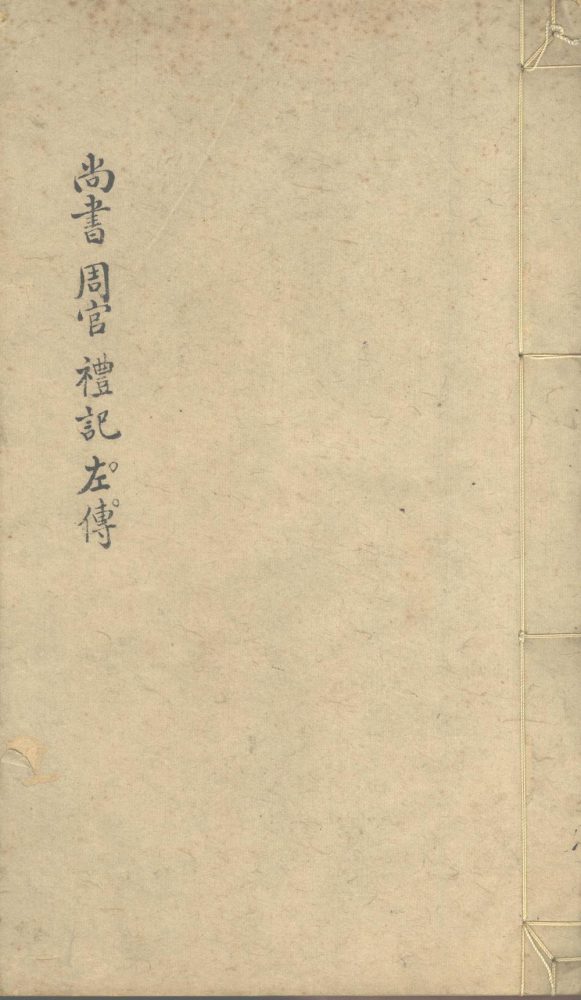 尚書 周官 禮記 左。傳。